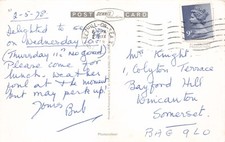 2-5-78
POST CARD
Delighted to
on Wednesday
(Thursday 11th
Please come for
lunch. Weather
foul at the moment
but may perk up!
Yours
Bub
Mrs Knight,
1, Colyton Terrace
Bayford Hill
Wincanton
Somerset.
BA9 9LQ